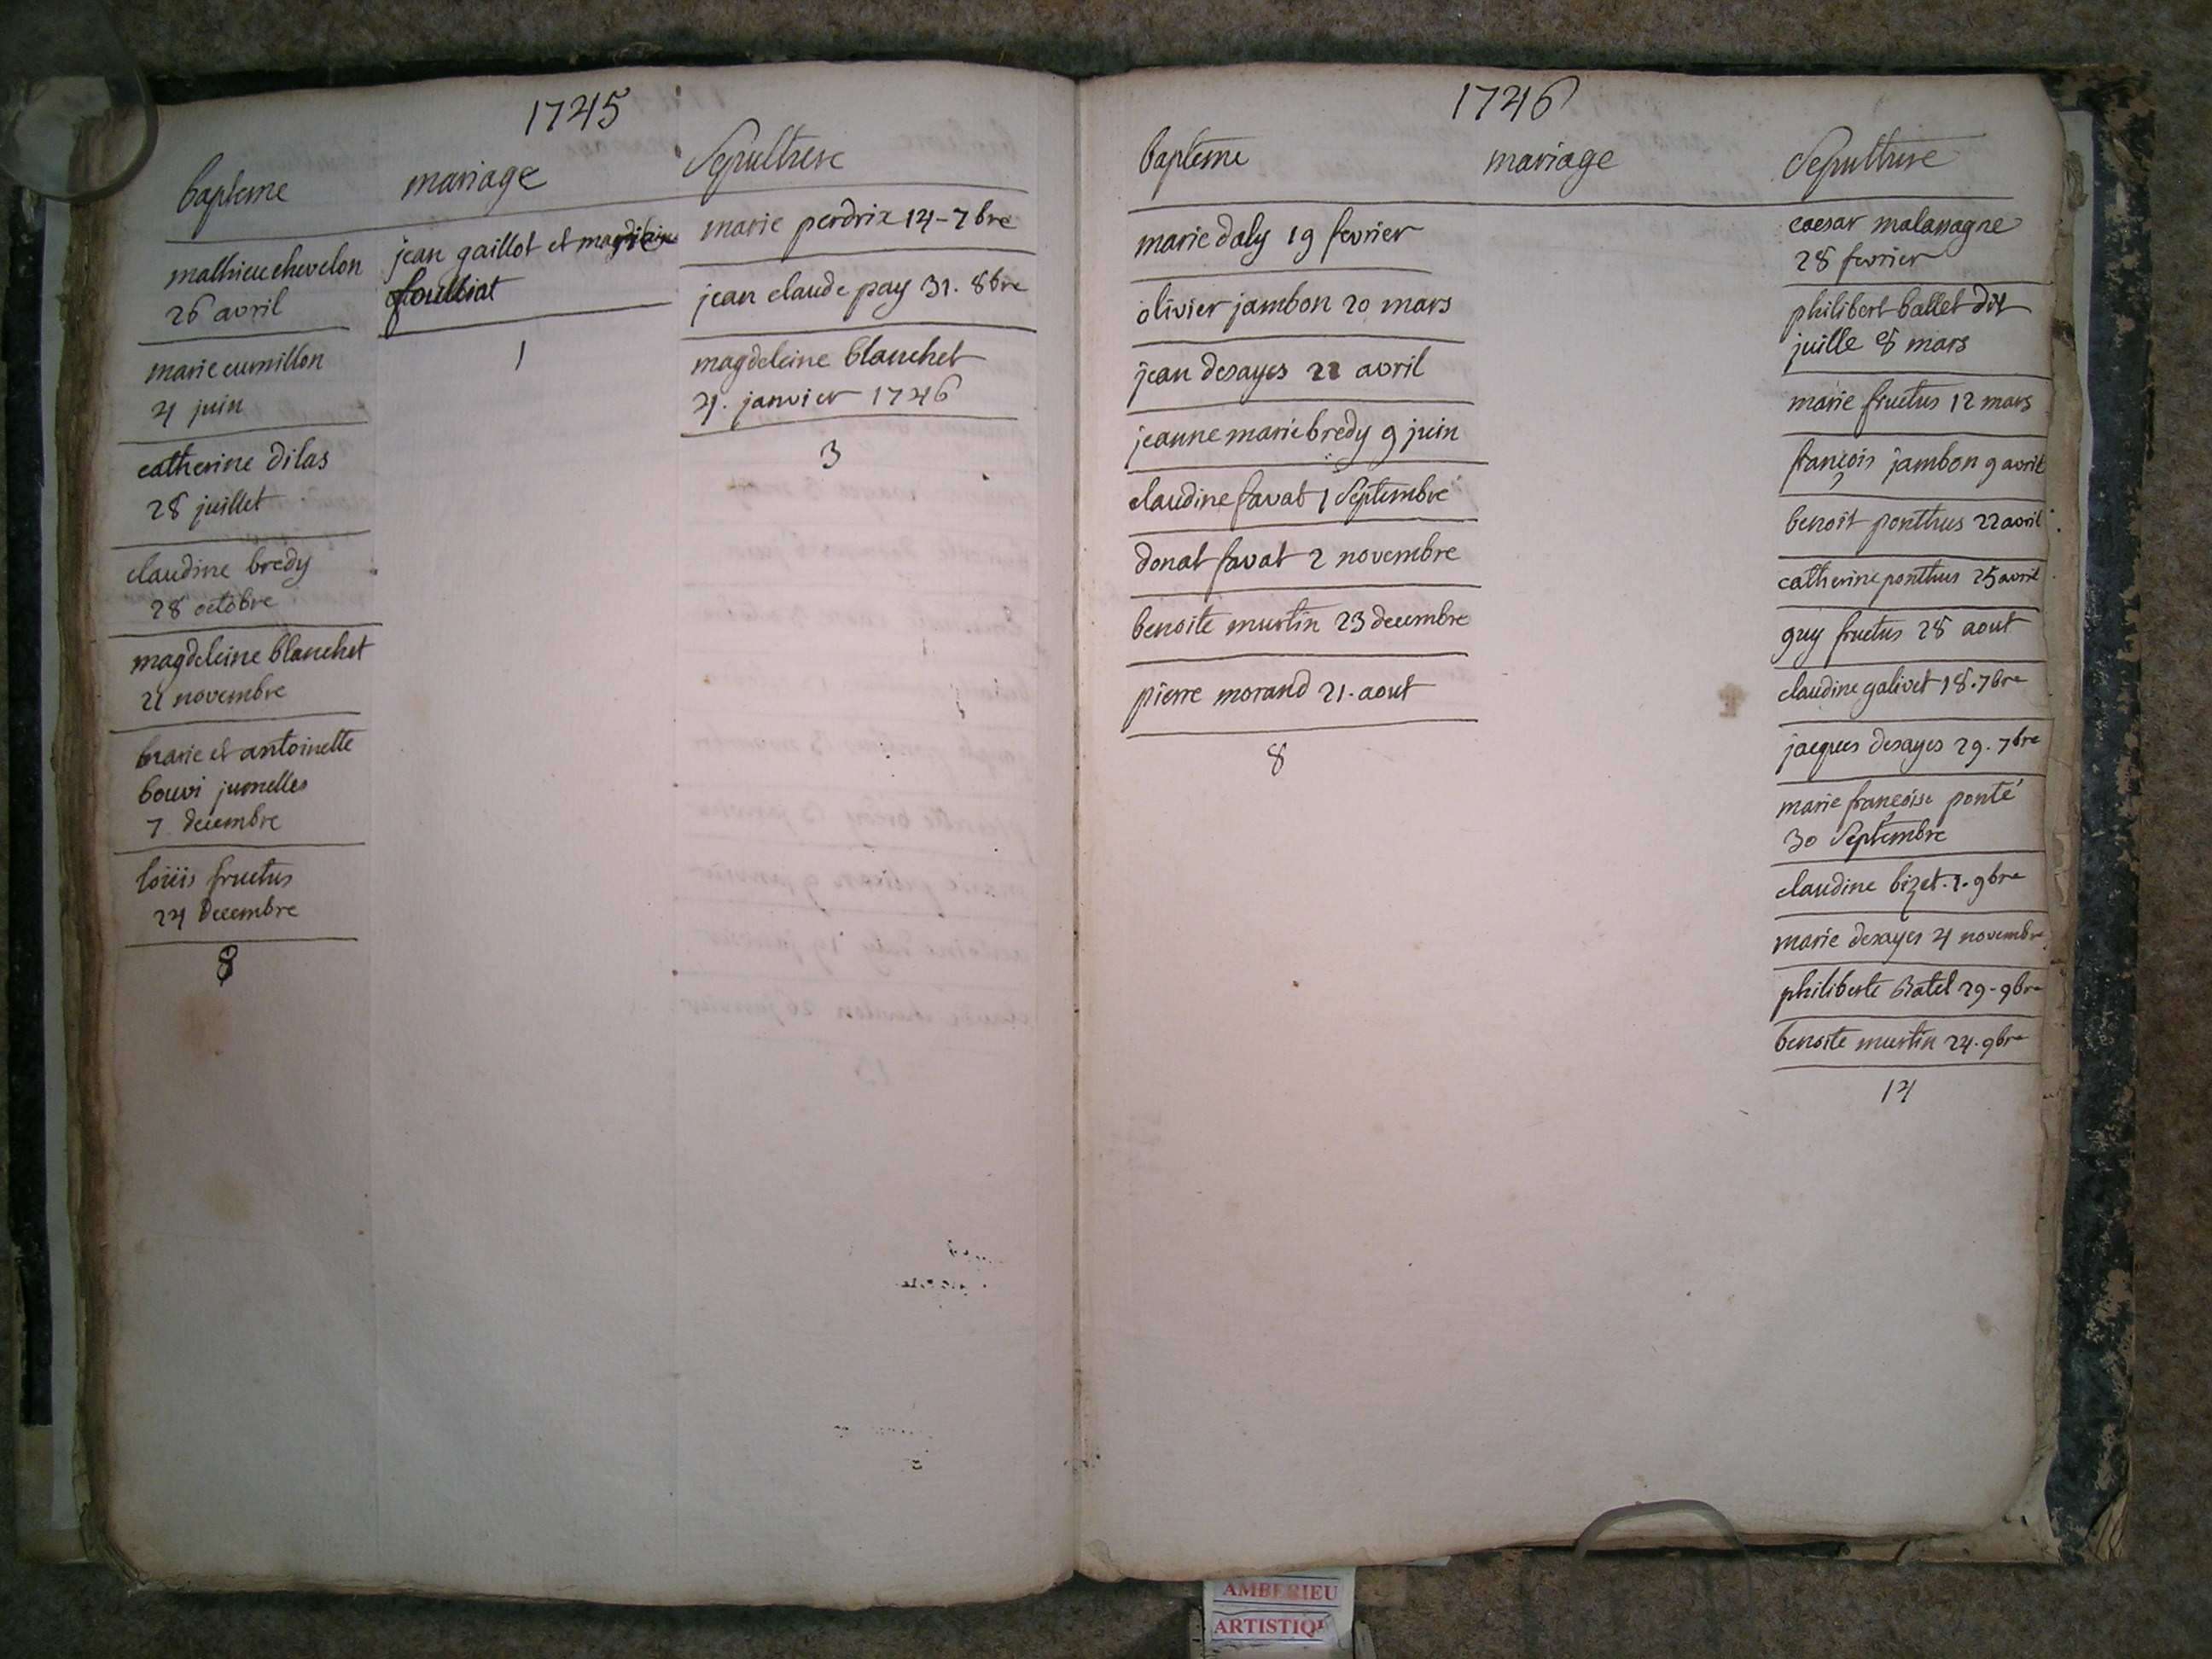 1745
bapteme
mathieu chevelon
26 avril
marie cumillon
4 juin
catherine dilas
28 juillet
claudine bredy
28 octobre
magdeleine blanchet
21 novembre
marie et antoinette
bouvi jumelles
7 decembre
loüis fructus
24 decembre
8
mariage
jean gaillot et
1
Sepulture
marie perdrix 14-7bre
jean claude pay 31. 8bre
magdeleine blanchet
21. janvier 1746
3
1746
bapteme
marie daly 19 fevrier
olivier jambon 20 mars
jean desayes 22 avril
jeanne marie bredy 9 juin
claudine favat 1 Septembre
donat favat 2 novembre
benoite murtin 23 decembre
pierre morand 21. aout
8
mariage
Sepulture
caesar malassagne
28 fevrier
philibert ballet dit
juille 8 mars
marie fructus 12 mars
françois jambon 9 avril
benoit ponthus 22 avril
catherine ponthus 25 avril
guy fructus 28 aout
claudine galivet 18.7bre
jacques desayes 29.7bre
marie françoise ponté
30 Septembre
claudine bizet.2.9bre
marie desayes 4 novembre
philiberte Ratel 29-9bre
benoite murtin 24.9bre
14
AMBERIEU
ARTISTIQ